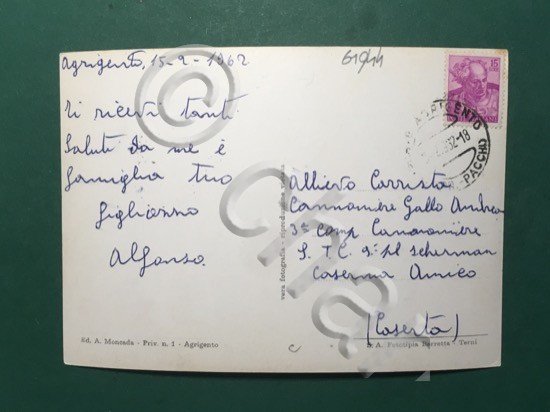 Agrigento, 15-9-1962
61944
Ti ricevi tanti
Saluti da me e
famiglia tuo
figlioccio
Alfonso.
Allievo Carrista
Cannoniere Gallo Andrea
3ª comp Cannoniere
S. T. C. sherman
Caserma Amico
(Caserta)
vera fotografia - riproduzione
Ed. A. Moncada - Priv. n. 1 - Agrigento
S. A. Fototipia Berretta - Terni
15
AGRIGENTO
62-18
PACCHI